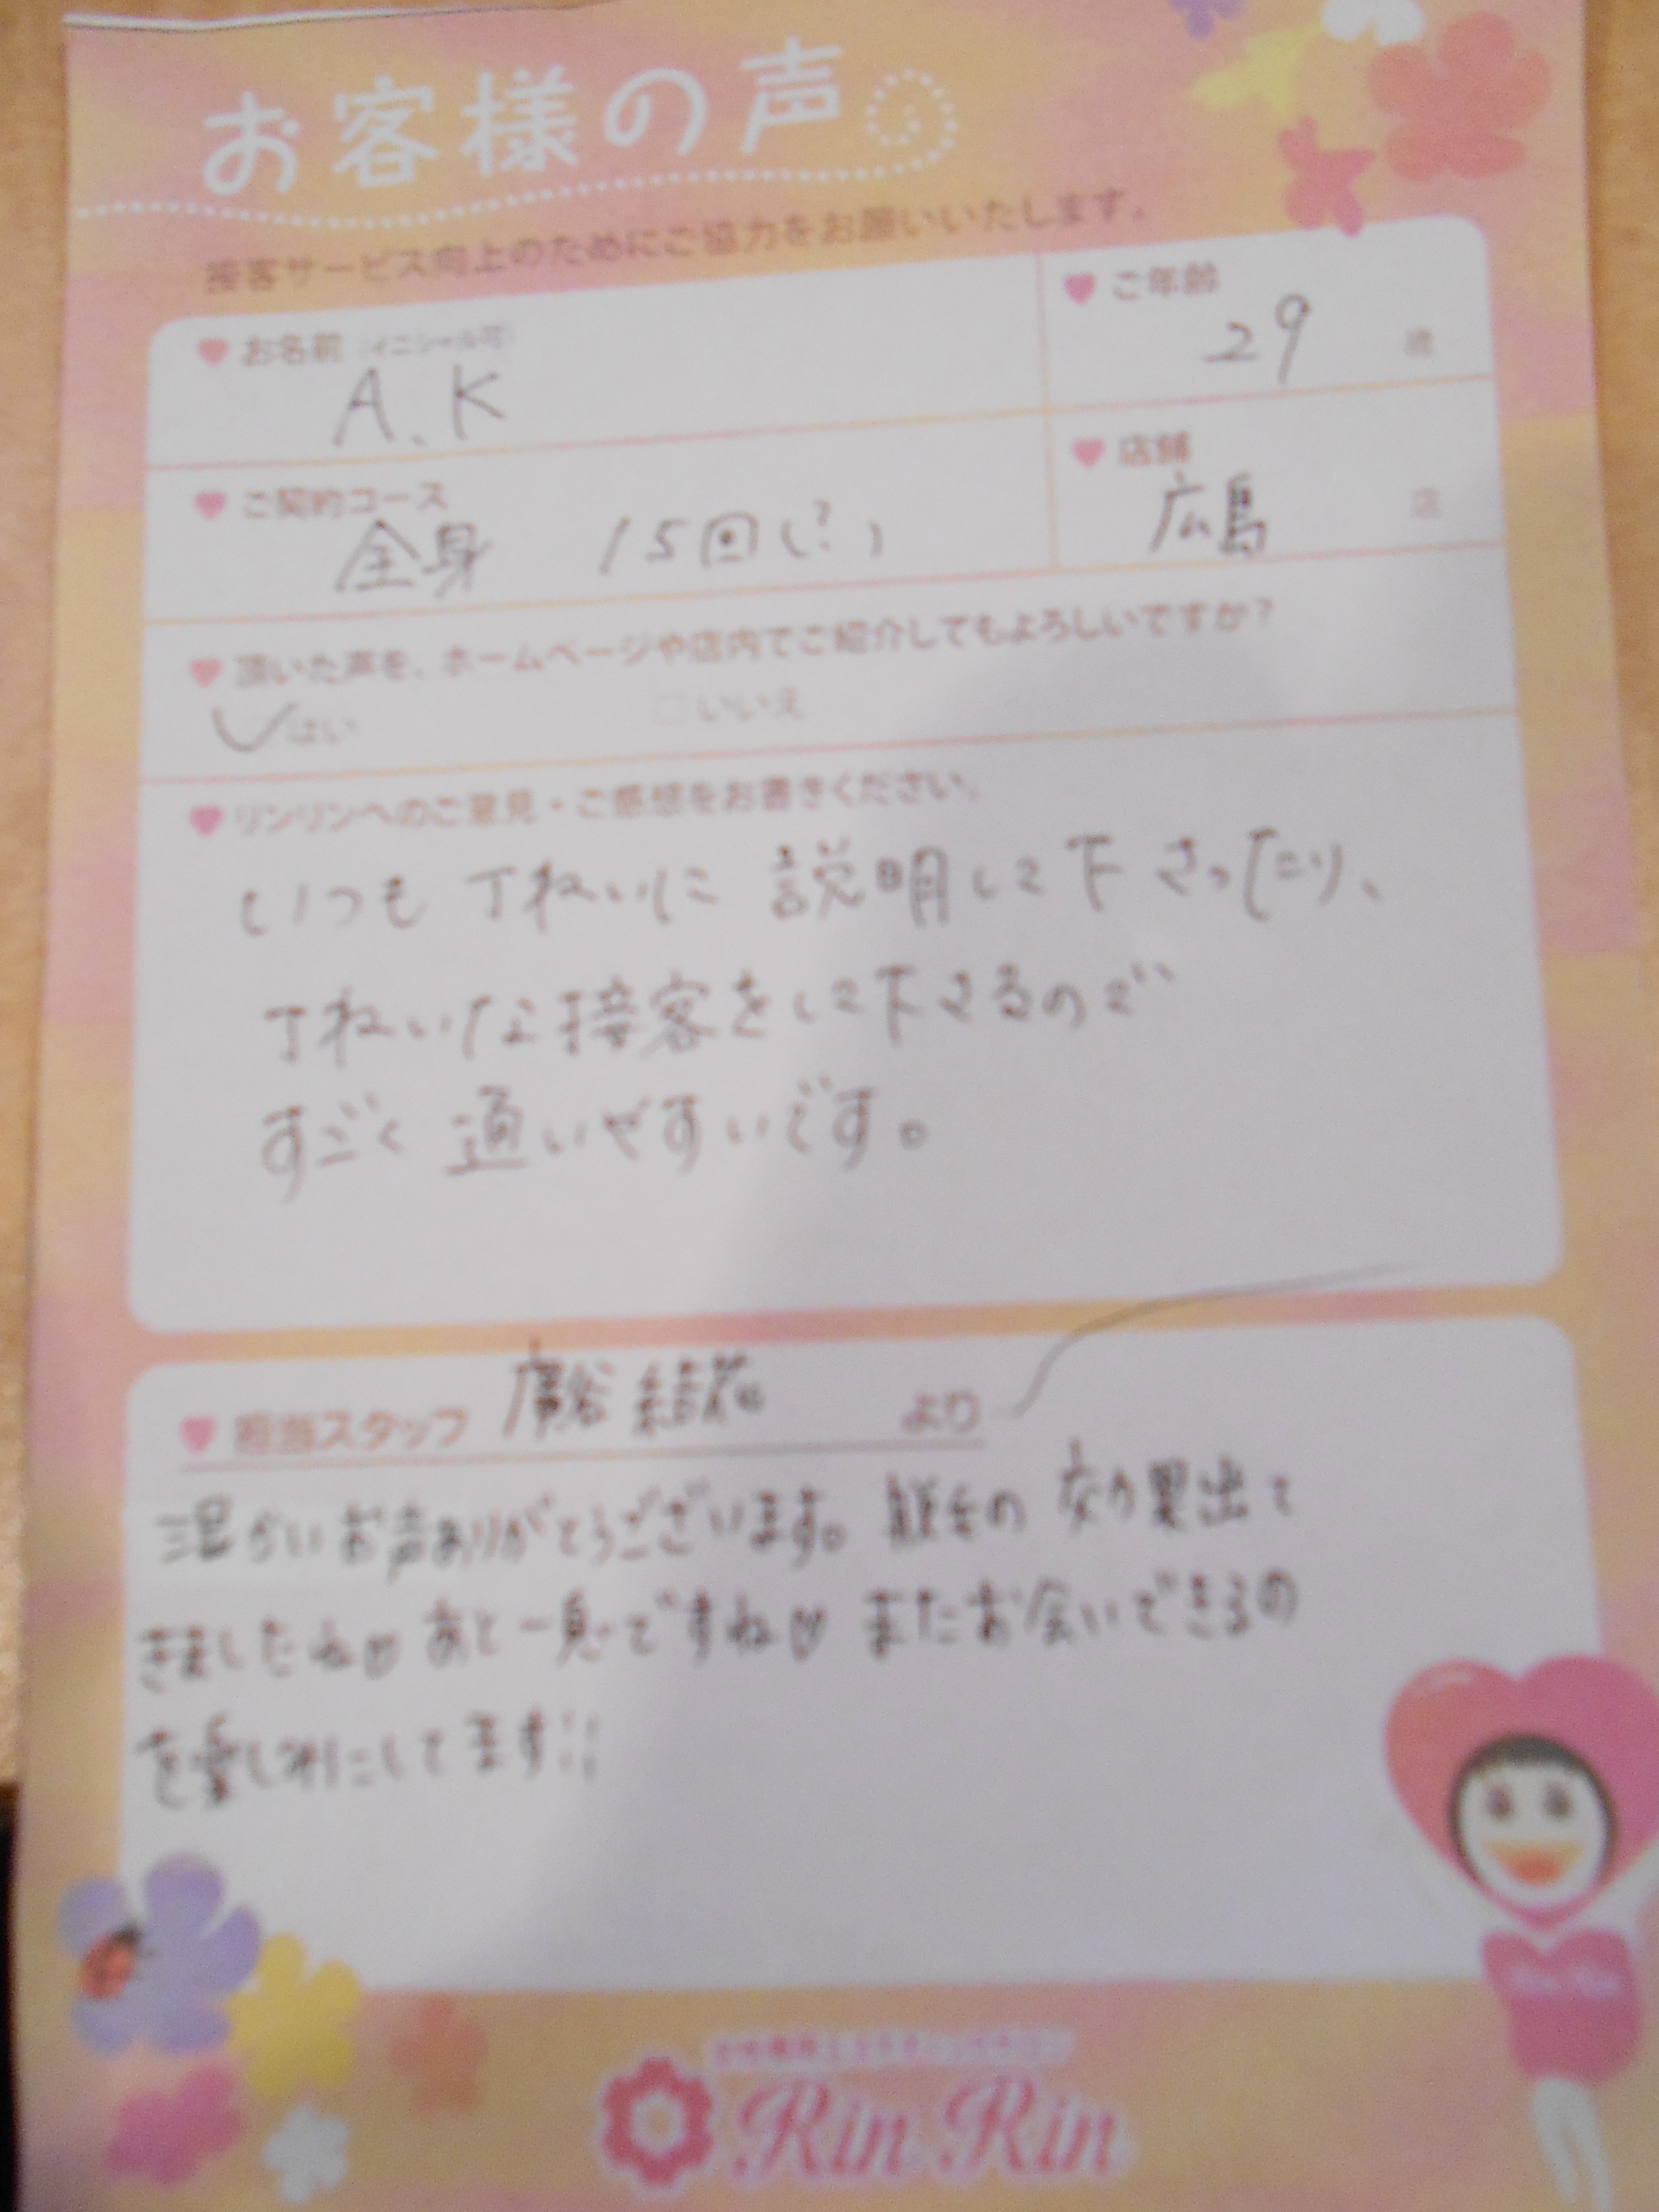 お客様の声
接客サービス向上のためにご協力をお願いいたします。
お名前(イニシャル可)
A.K
ご年齢
29 歳
ご契約コース
全身 15回(?)
店舗
広島 店
頂いた声を、ホームページや店内でご紹介してもよろしいですか?
はい □いいえ
リンリンへのご意見・ご感想をお書きください。
いつも丁ねいに説明して下さったり、
丁ねいな接客をして下さるので
すごく通いやすいです。
担当スタッフ 廣谷 結花 より
温かいお声ありがとうございます。脱毛の効果出て
きましたね♡あと一息ですね♡またお会いできるの
を楽しみにしてます!!
Rin Rin